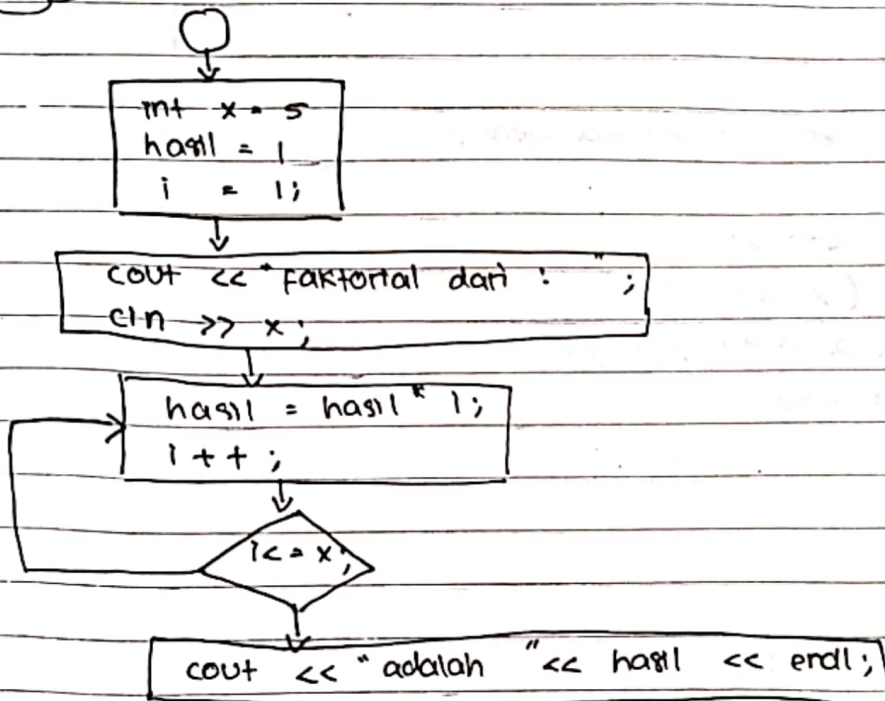 int x = 5
hasil = 1
i = 1;
cout << "faktorial dari : " ;
cin >> x ;
hasil = hasil * i;
i + + ;
i < = x ;
cout << " adalah " << hasil << endl;